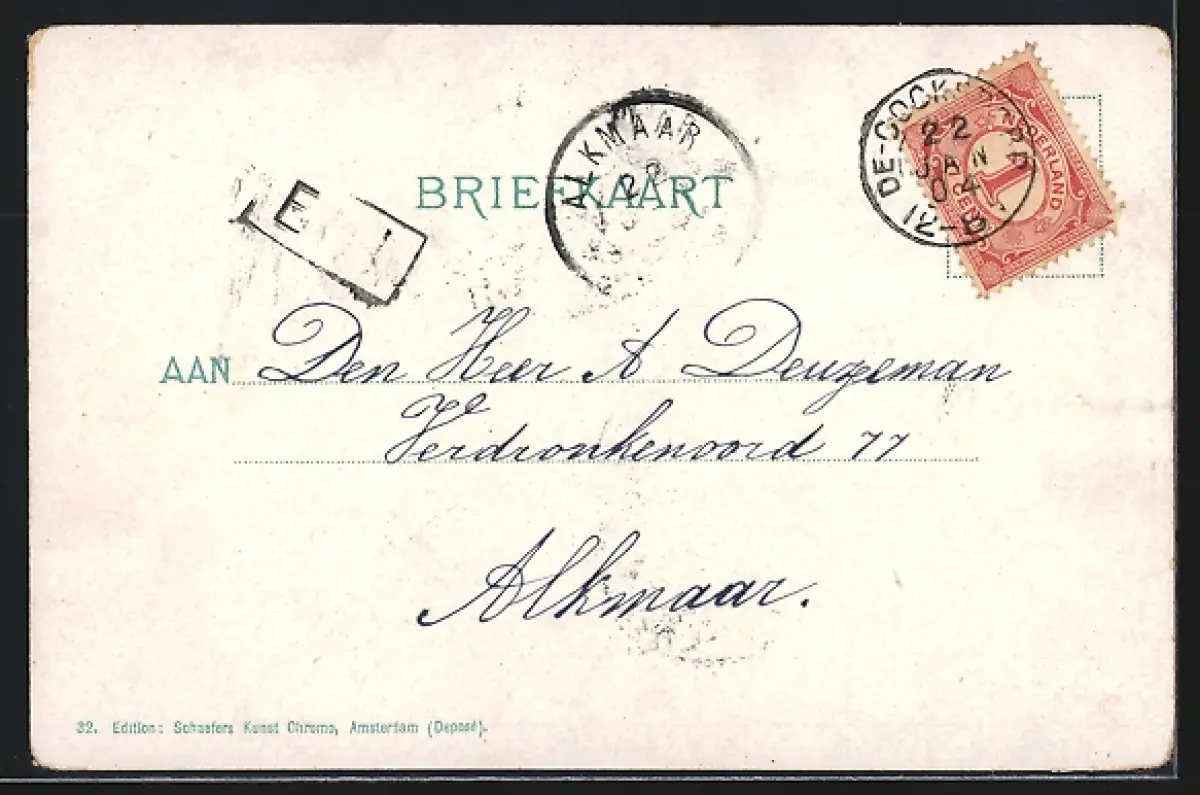 BRIEFKAART
ALKMAAR
22
E I
DE-COCKSDORP
22
JAN
04
12-8
NEDERLAND
1
AAN Den Heer A Deugeman
Verdronkenoord 77
Alkmaar.
32. Edition: Schaefers Kunst Chromo, Amsterdam (Deposé).